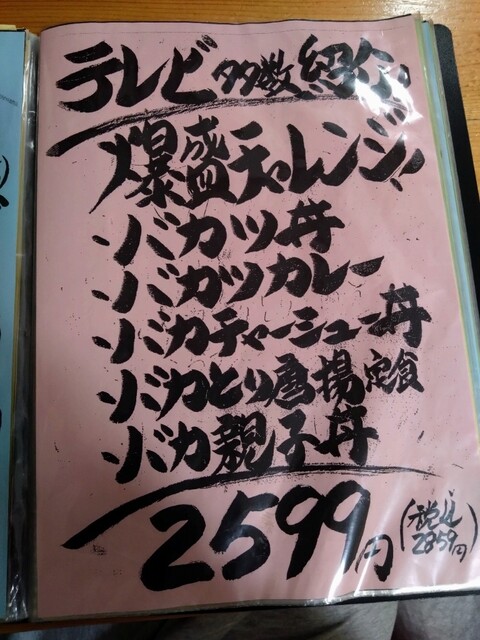 テレビ多数紹介
爆盛チャレンジ!
・バカツ丼
・バカツカレー
・バカチャーシュー丼
・バカとり唐揚定食
・バカ親子丼
2599円
(税込 2859円)